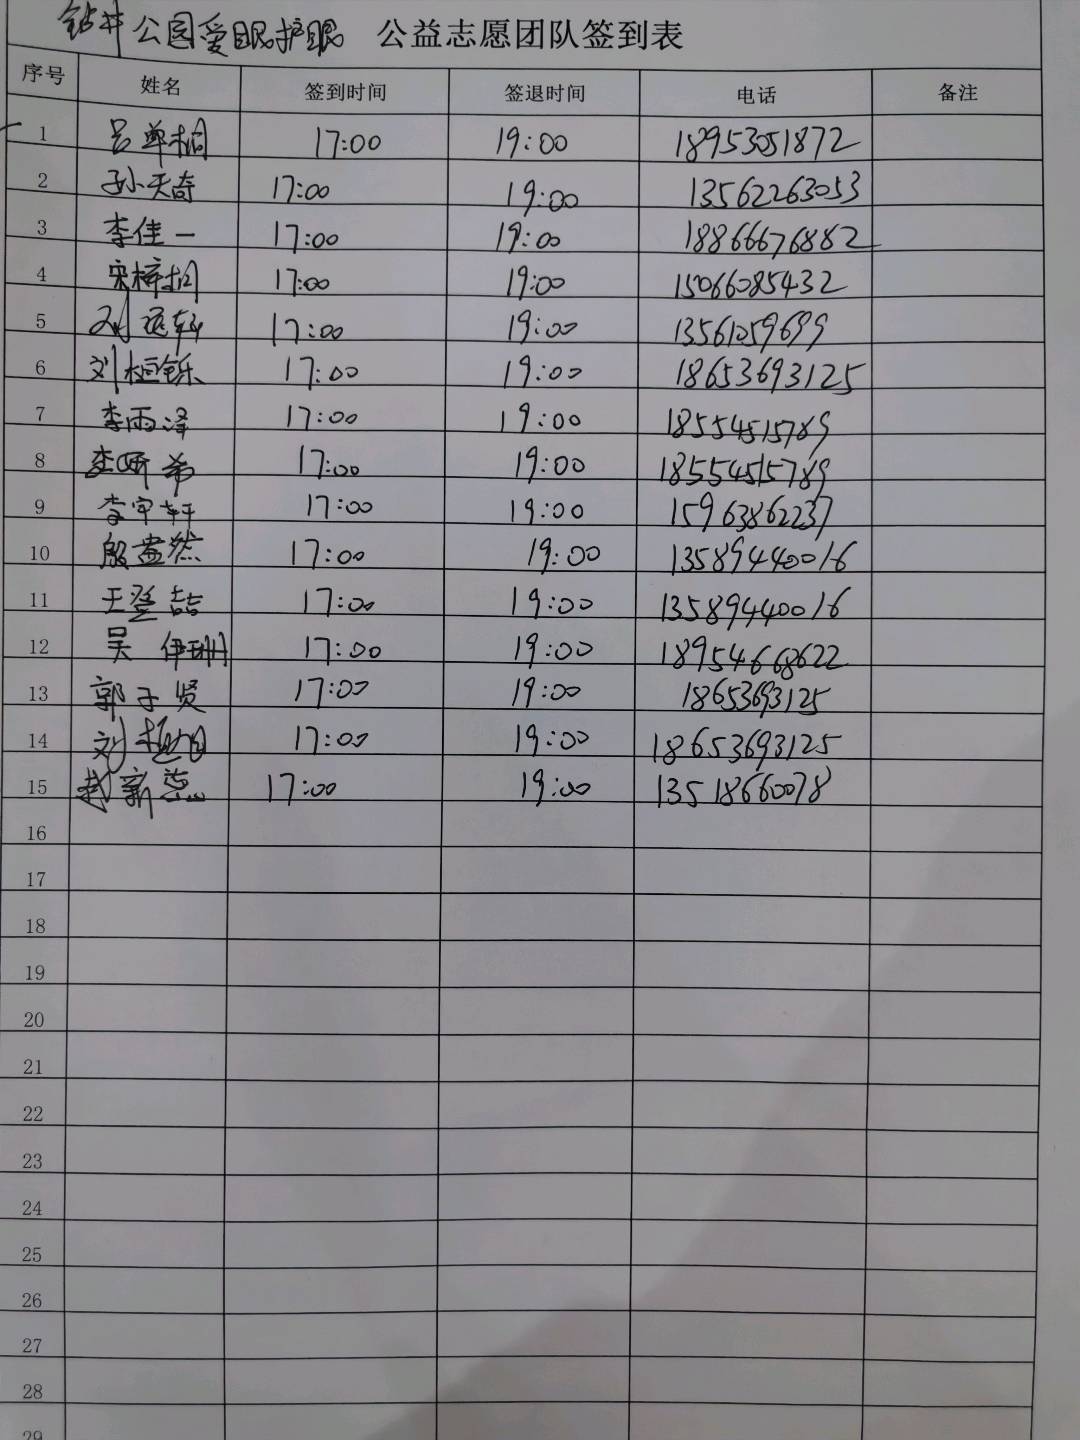 钻井公园爱眼护眼 公益志愿团队签到表
序号 姓名 签到时间 签退时间 电话 备注
1 吕单桐 17:00 19:00 18953051872
2 孙天奇 17:00 19:00 13562263053
3 李佳一 17:00 19:00 18866676882
4 宋梓桐 17:00 19:00 15066085432
5 17:00 19:00 13561059699
6 刘桓铄 17:00 19:00 18653693125
7 李雨泽 17:00 19:00 18554515789
8 李妍希 17:00 19:00 18554515789
9 李宇轩 17:00 19:00 15963862237
10 17:00 19:00 13589440016
11 王登喆 17:00 19:00 13589440016
12 吴伊珊 17:00 19:00 18954668622
13 郭子贤 17:00 19:00 18653693125
14 刘桓旭 17:00 19:00 18653693125
15 赵新蕊 17:00 19:00 13518660078
16
17
18
19
20
21
22
23
24
25
26
27
28
29